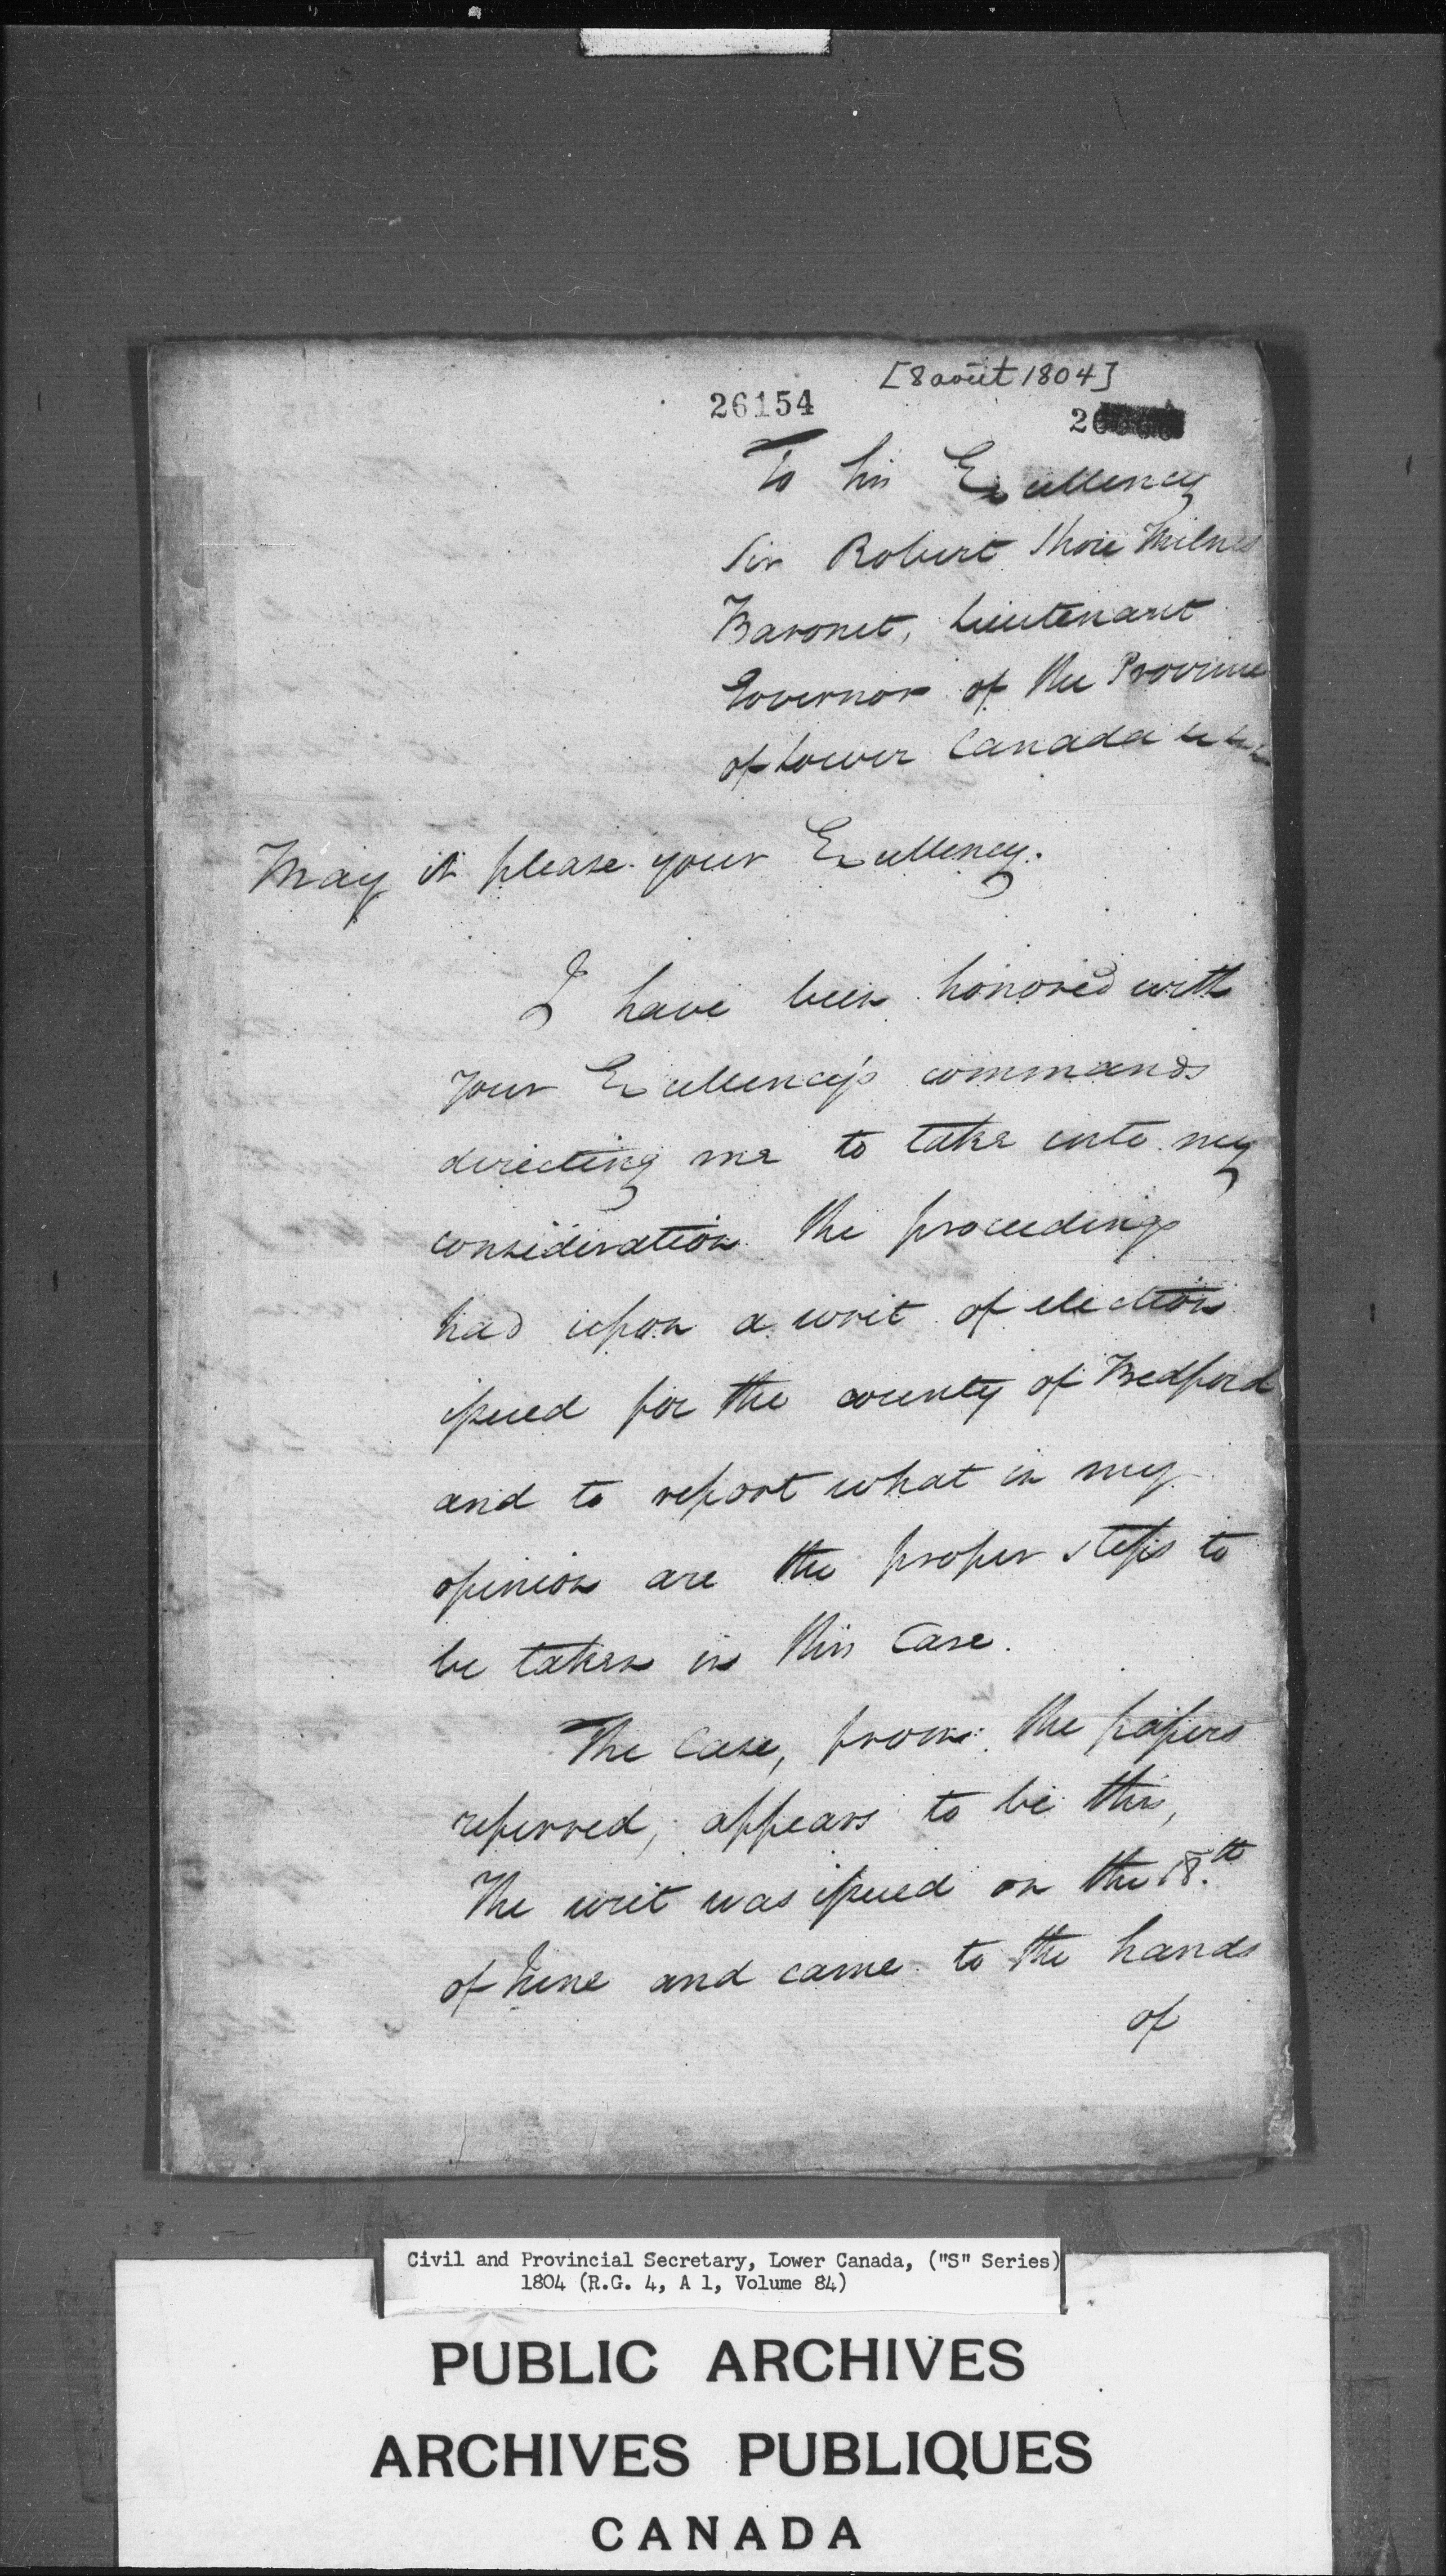 [8 août 1804]
26154
To his Excellency
Sir Robert Shore Milnes
Baronet, Lieutenant
Governor of the Province
of Lower Canada &c &c &c
May it please your Excellency.
I have been honored with
your Excellency's commands
directing me to take into my
consideration the proceedings
had upon a writ of election
issued for the county of Bedford
and to report what in my
opinion are the proper steps to
be taken in this Case.
The Case, from the papers
referred, appears to be this,
The writ was issued on the 18.th
of June and came to the hands
of
Civil and Provincial Secretary, Lower Canada, ("S" Series)
1804 (R.G. 4, A 1, Volume 84)
PUBLIC ARCHIVES
ARCHIVES PUBLIQUES
CANADA